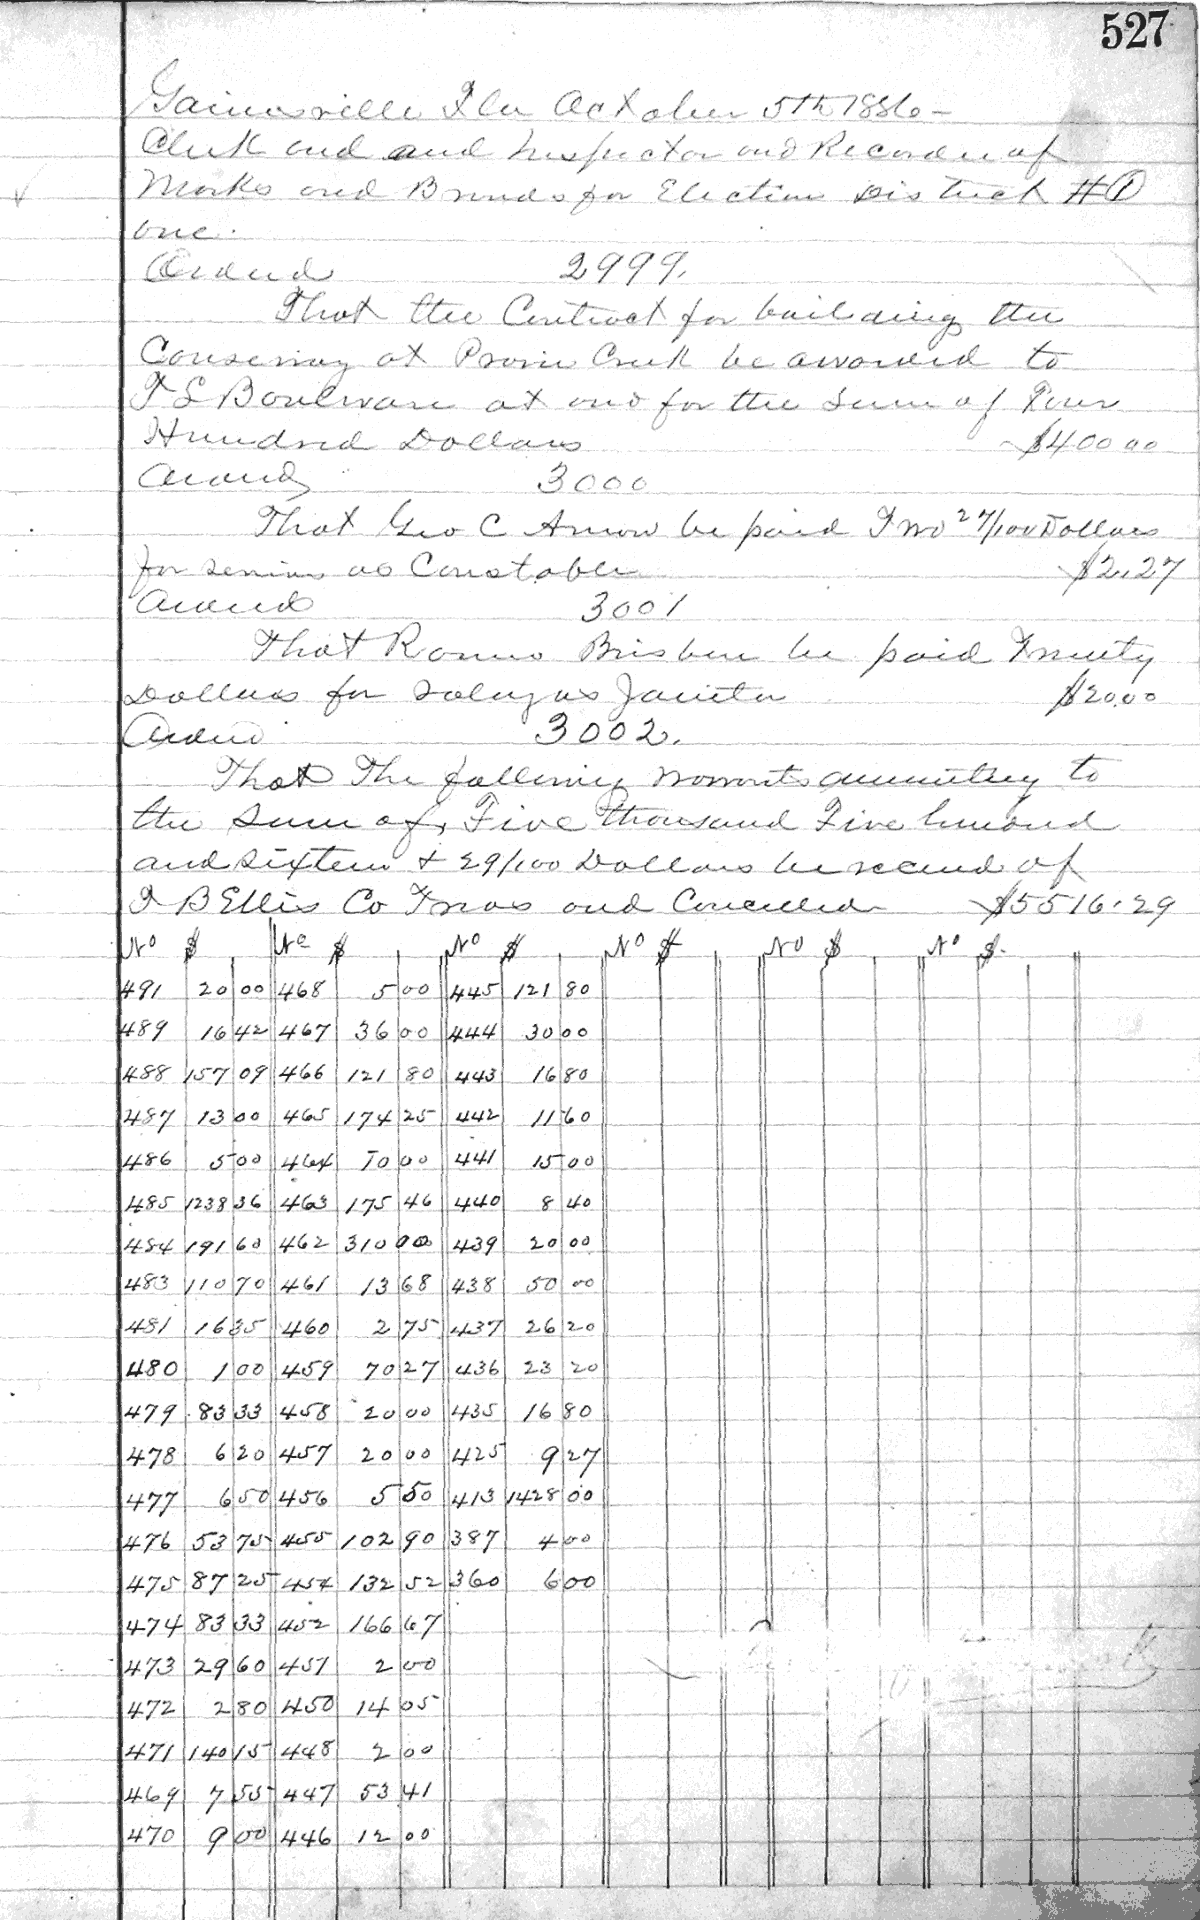 527
Gainesville Fla October 5th 1886-
Clerk and and Inspector and Recorder of
Marks and Brands for Election District #①
one.
Ordered 2999.
That the Contract for building the
Causeway at Prairie Creek be awarded to
F S Boulware at and for the Sum of Four
Hundred Dollars $400 00
Ordered 3000
That Geo C Arnow be paid Two 27/100 Dollars
for services as Constable $2.27
Ordered 3001
That Romeo Brisben be paid Twenty
Dollars for Salery as Janitor $20.00
Ordered 3002.
That The following Warrants amounting to
the Sum of, Five thousand Five hundred
and Sixteen + 29/100 Dollars be received of
F B Ellis Co Treas and Cancelled $5516.29
No $ No $ No $ No $ No $ No $
491 20 00 468 5 00 445 121 80
489 16 42 467 36 00 444 30 00
488 157 09 466 121 80 443 16 80
487 13 00 465 174 25 442 11 60
486 5 00 464 70 00 441 15 00
485 1238 36 463 175 46 440 8 40
484 191 60 462 310 00 439 20 00
483 110 70 461 13 68 438 50 00
481 16 35 460 2 75 437 26 20
480 1 00 459 70 27 436 23 20
479 83 33 458 20 00 435 16 80
478 6 20 457 20 00 425 9 27
477 6 50 456 5 50 413 1428 00
476 53 75 455 102 90 387 4 00
475 87 25 454 132 52 360 6 00
474 83 33 452 166 67
473 29 60 451 2 00
472 2 80 450 14 05
471 140 15 448 2 00
469 7 55 447 53 41
470 9 00 446 12 00